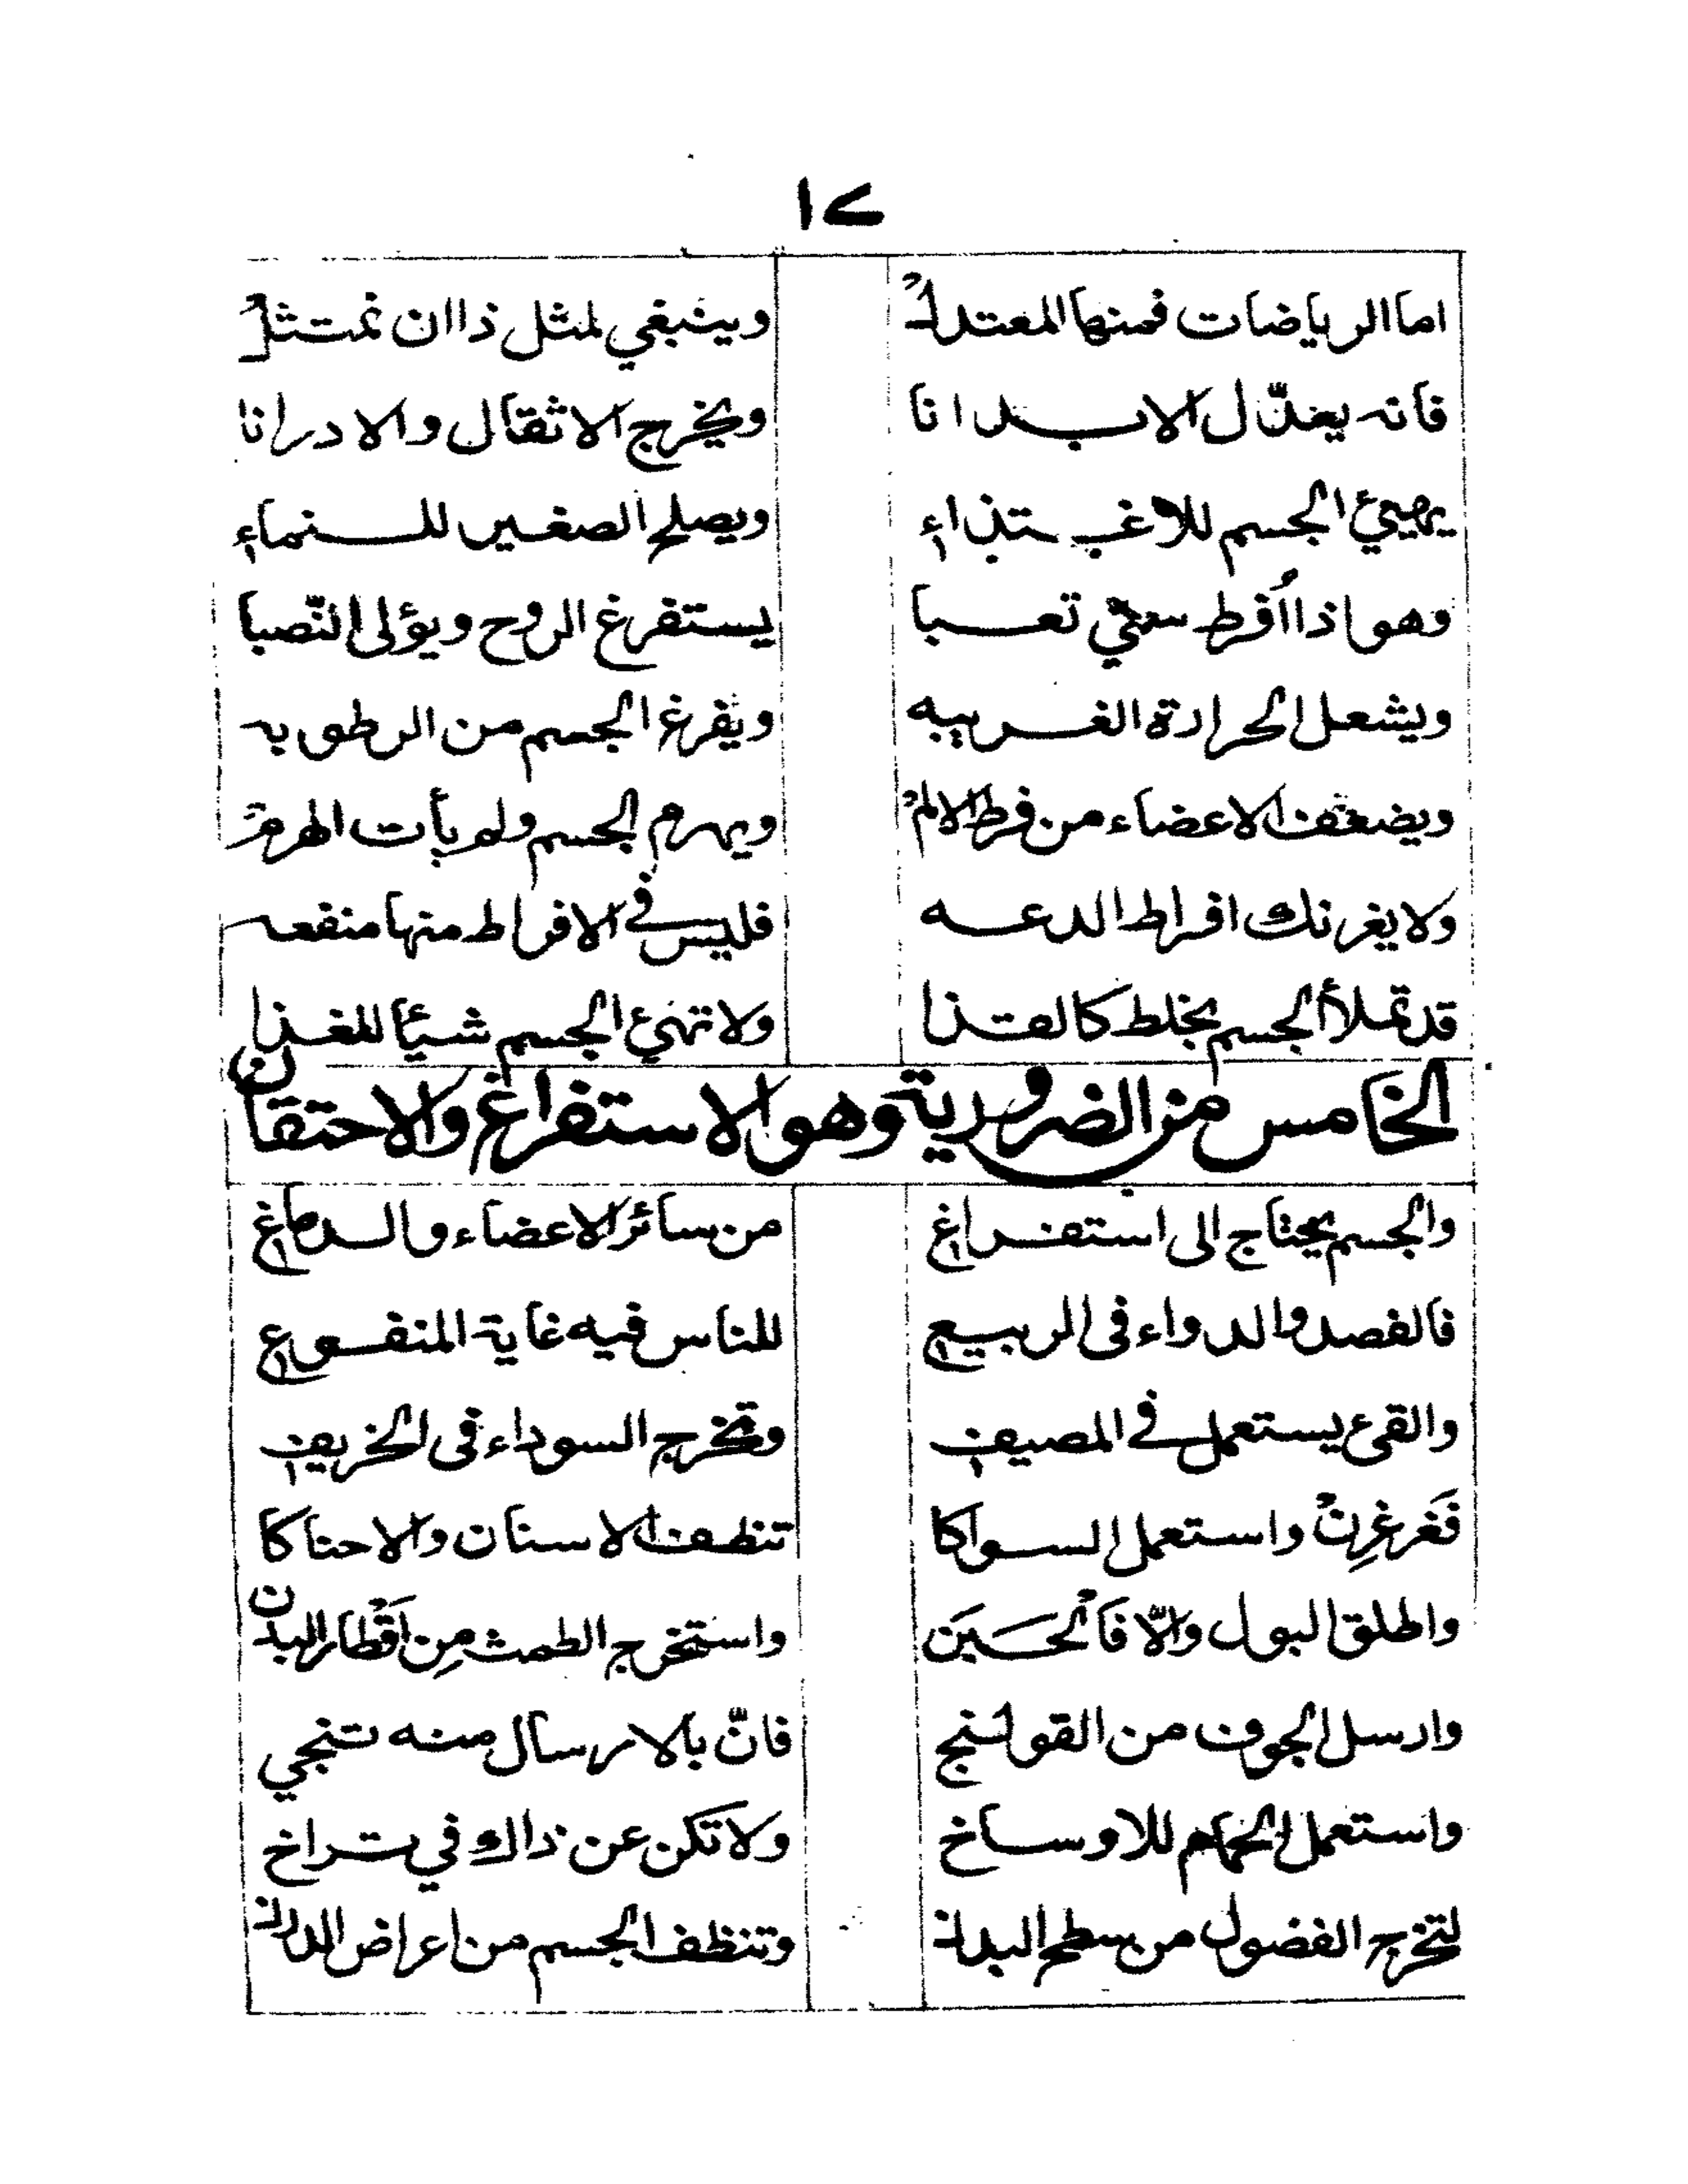 ١٢
اما الرياضات فمنها المعتدلْ وينبغي لمثل ذا ان تمتثلْ
فانه يعدّل الابدانا ويخرج الاثقال والادرانا
يهيئ الجسم للاغتذاءِ ويصلح الصغير للنماءِ
وهو اذا اُفرط سمي تعبا يستفرغ الروح ويؤلى النّصبا
ويشعل الحرارة الغريبه ويفرغ الجسم من الرطوبه
ويضعف الاعضاء من فرط الالمْ ويهرم الجسم ولم يأت الهرمْ
ولا يغرنك افراط الدعه فليس في الافراط منها منفعه
قد تملأ الجسم بخلط كالقذا ولا تهئ الجسم شيئا للغذا
الخامس من الضرورية وهو الاستفراغ والاحتقان
والجسم يحتاج الى استفراغِ من سائر الاعضاء والدماغِ
فالفصد والدواء في الربيعِ للناس فيه غاية المنفوعِ
والقئ يستعمل في المصيفِ وتخرج السوداء في الخريفِ
فَغرغِرنْ واستعمل السواكا تنظف الاسنان والاحناكا
واطلق البول والّا فَاْلحَبَن واستخرج الطمث مِن اَقْطار البدن
وارسل الجوف من القولنج فانّ بالارسال منه تنجي
واستعمل الحمام للاوساخ ولا تكن عن ذاك في تراخ
لتخرج الفضول من سطح البدن وتنظف الجسم من اعراض الدرن